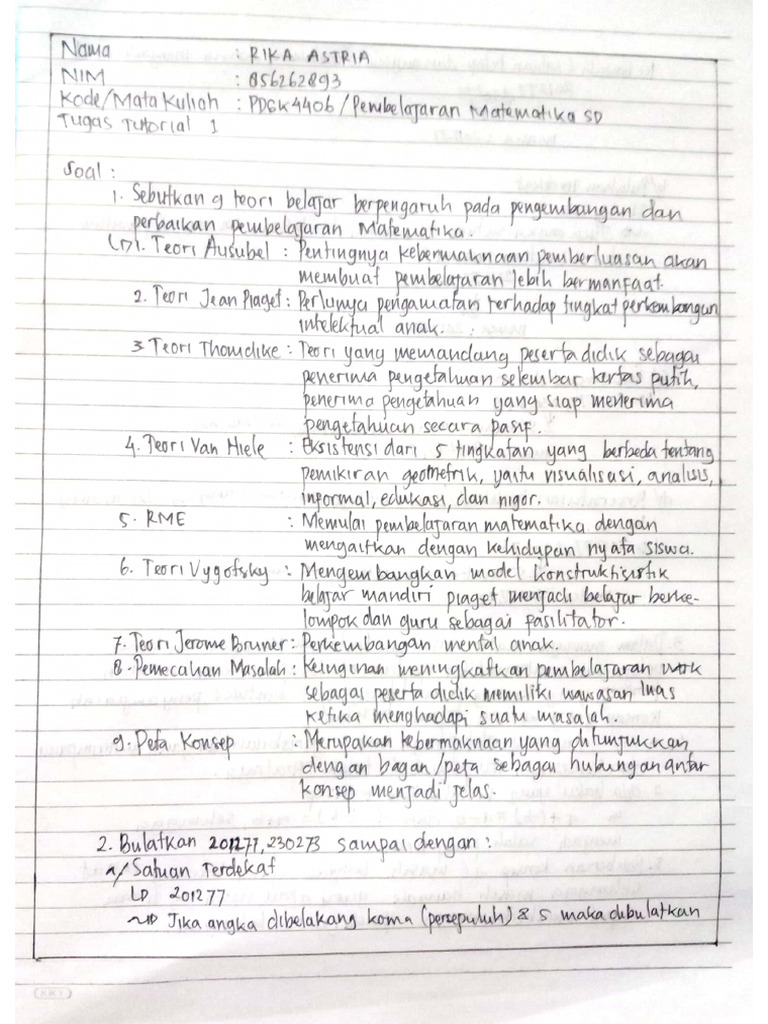 Nama : RIKA ASTRIA
NIM : 856262893
Kode/Mata Kuliah : PDGK4406/Pembelajaran Matematika SD
Tugas Tutorial 1
Soal :
1. Sebutkan 9 teori belajar berpengaruh pada pengembangan dan
perbaikan pembelajaran Matematika.
1. Teori Ausubel : Pentingnya kebermaknaan pemberluasan akan
membuat pembelajaran lebih bermanfaat.
2. Teori Jean Piaget : Perlunya pengamatan terhadap tingkat perkembangan
intelektual anak.
3 Teori Thorndike : Teori yang memandang peserta didik sebagai
penerima pengetahuan selembar kertas putih,
penerima pengetahuan yang siap menerima
pengetahuan secara pasif.
4. Teori Van Hiele : Eksistensi dari 5 tingkatan yang berbeda tentang
pemikiran geometrik, yaitu visualisasi, analisis,
informal, edukasi, dan rigor.
5. RME : Memulai pembelajaran matematika dengan
mengaitkan dengan kehidupan nyata siswa.
6. Teori Vygotsky : Mengembangkan model
belajar mandiri piaget menjadi belajar berke-
lompok dan guru sebagai fasilitator.
7. Teori Jerome Bruner : Perkembangan mental anak.
8. Pemecahan Masalah : Keinginan meningkatkan pembelajaran
sebagai peserta didik memiliki wawasan luas
ketika menghadapi suatu masalah.
9. Peta Konsep : Merupakan kebermaknaan yang ditunjukkan
dengan bagan/peta sebagai hubungan antar
konsep menjadi jelas.
2. Bulatkan 201277,230273 sampai dengan :
a/ Satuan Terdekat
201277
Jika angka dibelakang koma (persepuluh) & 5 maka dibulatkan